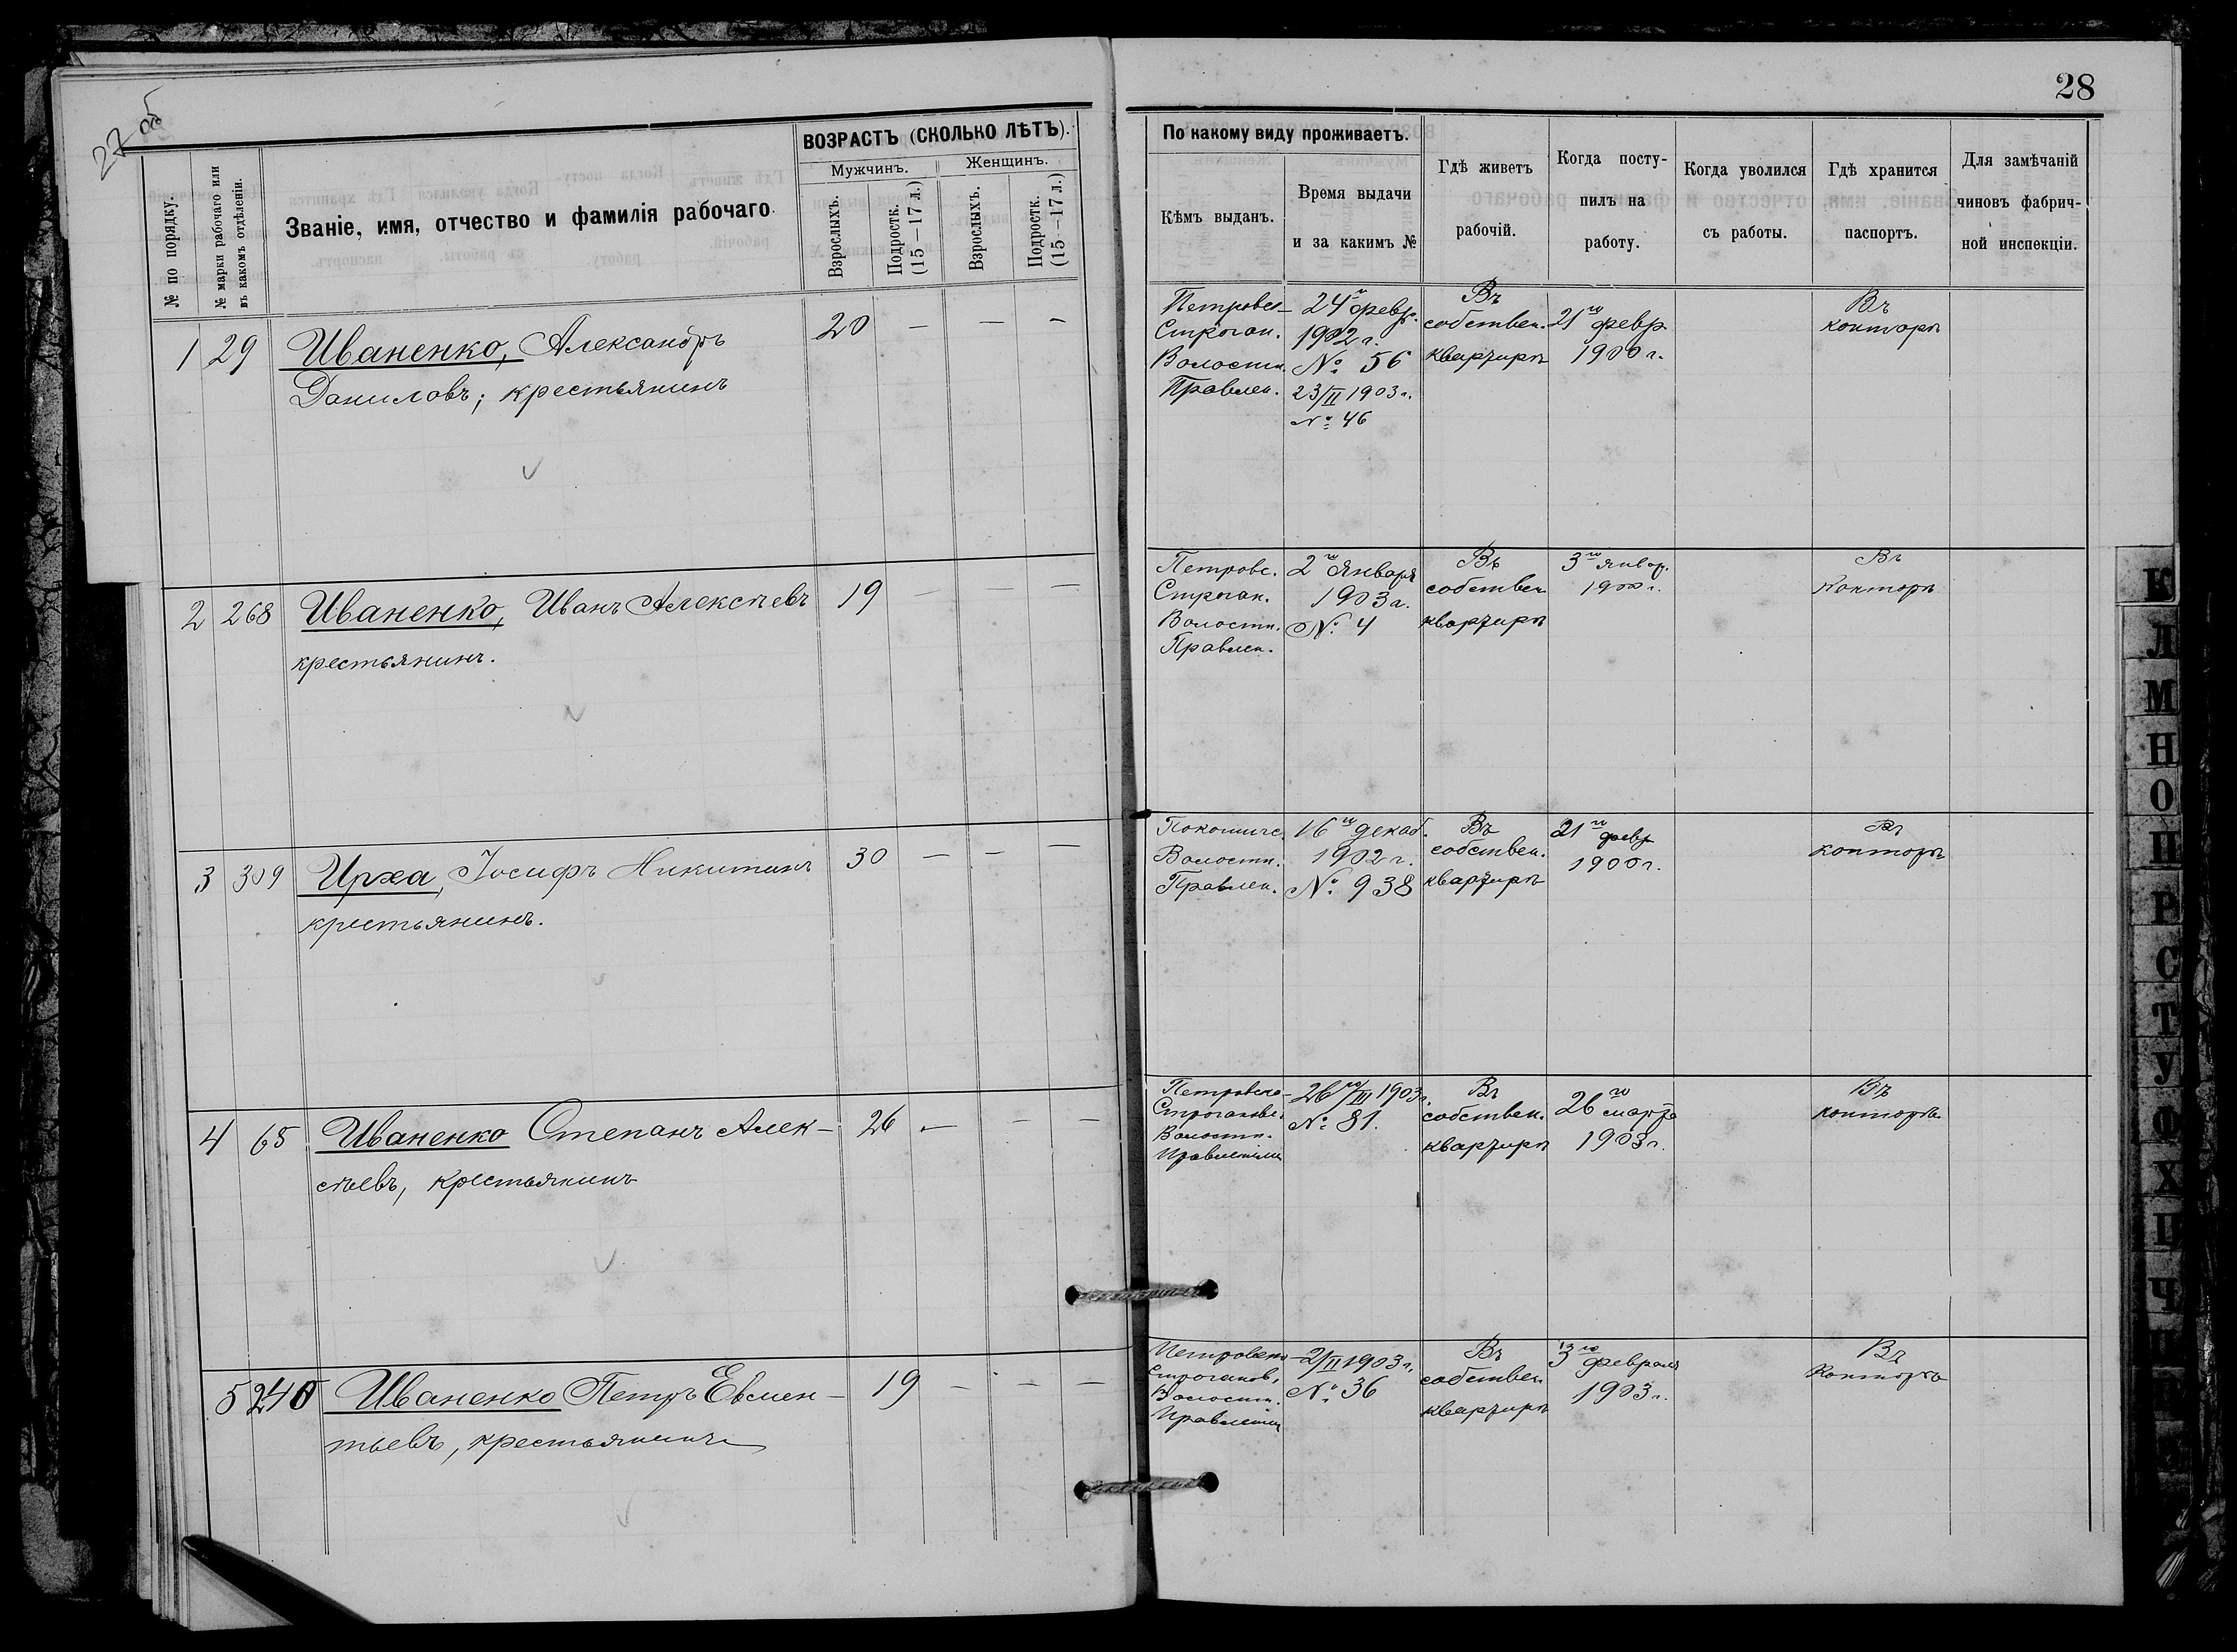 27 об
28
№ по порядку.
№ марки рабочаго или
въ какомъ отдѣленіи.
Званіе, имя, отчество и фамилія рабочаго.
ВОЗРАСТЪ (СКОЛЬКО ЛѢТЪ).
Мужчинъ.
Женщинъ.
Взрослыхъ.
Подростк.
(15—17 л.)
Взрослыхъ.
Подростк.
(15—17 л.)
По какому виду проживаетъ.
Кѣмъ выданъ.
Время выдачи
и за какимъ №
Гдѣ живетъ
рабочій.
Когда посту-
пилъ на
работу.
Когда уволился
съ работы.
Гдѣ хранится
паспортъ.
Для замѣчаній
чиновъ фабрич-
ной инспекціи.
1 29 Иваненко, Александръ 20 — — —
Даниловъ; крестьянинъ
Петровс-
Строган.
Волостн.
Правлен.
24го февр.
1902 г.
№ 56
23/II 1903 г.
№ 46
Въ
собствен.
квартирѣ
21го февр.
1900 г.
Въ
конторѣ
2 268 Иваненко, Иванъ Алексѣевъ 19 — — —
крестьянинъ.
Петровс.
Строган.
Волостн.
Правлен.
2го Января
1903 г.
№ 4
Въ
собствен
квартирѣ
3го Январ.
1900 г.
Въ
Конторѣ
3 309 Ирха, Іосифъ Никитинъ 30 — — —
крестьянинъ.
Покошичс.
Волостн.
Правлен.
16го декаб.
1902 г.
№ 938
Въ
собствен.
квартирѣ
21го февр
1900 г.
Въ
конторѣ
4 65 Иваненко Степанъ Алек- 26 — — —
сѣевъ, крестьянинъ
Петровско-
Строгановс.
Волостн.
Правленіем
26го/III 1903 г.
№ 81.
Въ
собствен.
квартирѣ
26го марта
1903 г.
Въ
конторѣ
5 240 Иваненко Петръ Евмен- 19 — — —
тьевъ, крестьянинъ
Петровско-
Строганов,
Волостн.
Правленіем
2/II 1903 г.
№ 36
Въ
собствен
квартирѣ
13го февраля
1903 г.
Въ
Конторѣ
К
Л
М
Н
О
П
Р
С
Т
У
Ф
Х
Ц
Ч